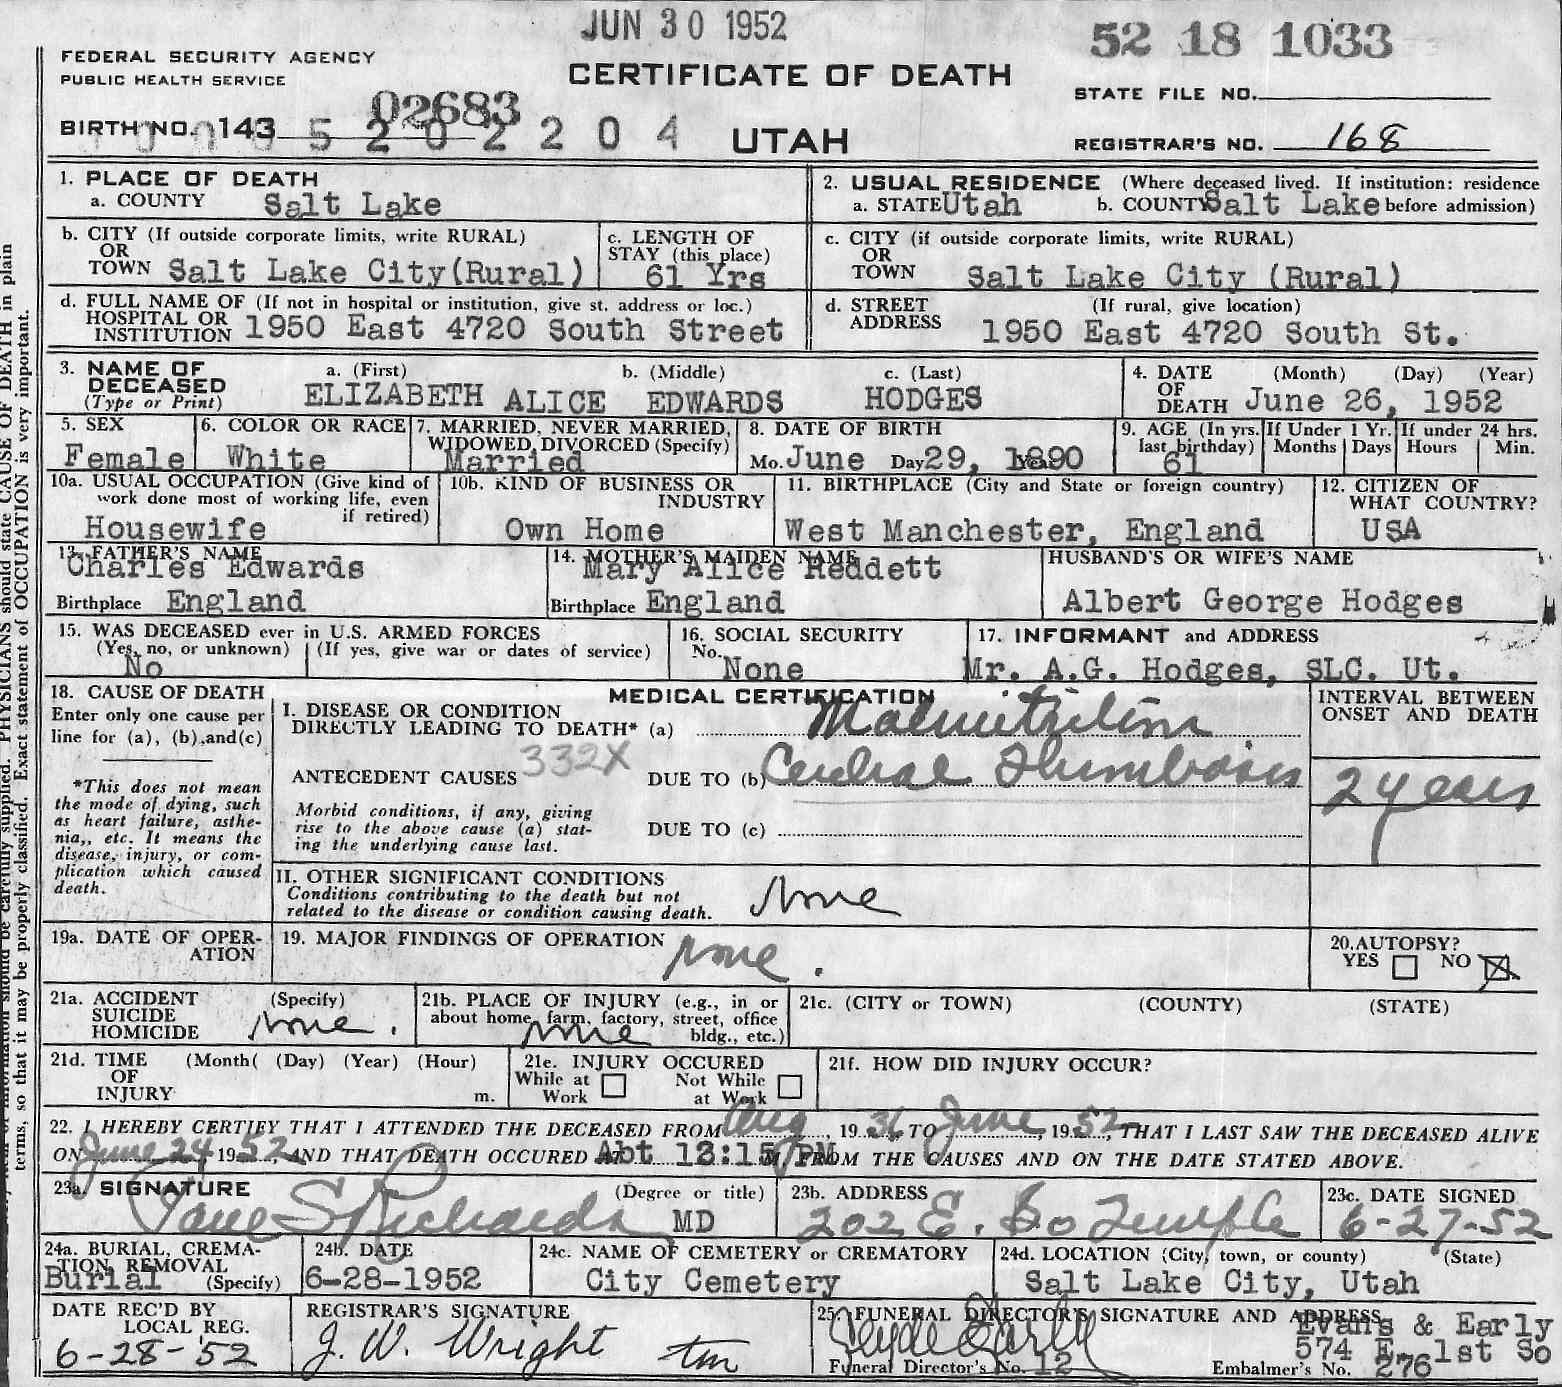 JUN 30 1952
52 18 1033
FEDERAL SECURITY AGENCY
PUBLIC HEALTH SERVICE
CERTIFICATE OF DEATH
STATE FILE NO.
02683
BIRTH NO. 143
5 2 0 2 2 0 4
UTAH
REGISTRAR'S NO. 168
1. PLACE OF DEATH
a. COUNTY Salt Lake
2. USUAL RESIDENCE (Where deceased lived. If institution: residence
a. STATE Utah b. COUNTY Salt Lake before admission)
b. CITY (If outside corporate limits, write RURAL)
OR
TOWN Salt Lake City(Rural)
c. LENGTH OF
STAY (this place)
61 Yrs
c. CITY (if outside corporate limits, write RURAL)
OR
TOWN Salt Lake City (Rural)
d. FULL NAME OF (If not in hospital or institution, give st. address or loc.)
HOSPITAL OR
INSTITUTION 1950 East 4720 South Street
d. STREET (If rural, give location)
ADDRESS 1950 East 4720 South St.
3. NAME OF
DECEASED
(Type or Print)
a. (First) b. (Middle) c. (Last)
ELIZABETH ALICE EDWARDS HODGES
4. DATE (Month) (Day) (Year)
OF
DEATH June 26, 1952
5. SEX
Female
6. COLOR OR RACE
White
7. MARRIED, NEVER MARRIED,
WIDOWED, DIVORCED (Specify)
Married
8. DATE OF BIRTH
Mo. June Day 29, 1890
9. AGE (In yrs.
last birthday)
61
If Under 1 Yr.
Months Days
If under 24 hrs.
Hours Min.
10a. USUAL OCCUPATION (Give kind of
work done most of working life, even
if retired)
Housewife
10b. KIND OF BUSINESS OR
INDUSTRY
Own Home
11. BIRTHPLACE (City and State or foreign country)
West Manchester, England
12. CITIZEN OF
WHAT COUNTRY?
USA
13. FATHER'S NAME
Charles Edwards
Birthplace England
14. MOTHER'S MAIDEN NAME
Mary Alice Reddett
Birthplace England
HUSBAND'S OR WIFE'S NAME
Albert George Hodges
15. WAS DECEASED ever in U.S. ARMED FORCES
(Yes, no, or unknown) (If yes, give war or dates of service)
No
16. SOCIAL SECURITY
No. None
17. INFORMANT and ADDRESS
Mr. A.G. Hodges, SLC. Ut.
18. CAUSE OF DEATH
Enter only one cause per
line for (a), (b), and (c)
*This does not mean
the mode of dying, such
as heart failure, asthe-
nia,, etc. It means the
disease, injury, or com-
plication which caused
death.
MEDICAL CERTIFICATION
I. DISEASE OR CONDITION
DIRECTLY LEADING TO DEATH* (a) Malnutrition
332X
ANTECEDENT CAUSES DUE TO (b) Cerebral Thrombosis
Morbid conditions, if any, giving
rise to the above cause (a) stat-
ing the underlying cause last.
DUE TO (c)
INTERVAL BETWEEN
ONSET AND DEATH
2 years
II. OTHER SIGNIFICANT CONDITIONS
Conditions contributing to the death but not
related to the disease or condition causing death.
None
19a. DATE OF OPER-
ATION
19. MAJOR FINDINGS OF OPERATION None.
20. AUTOPSY?
YES NO
21a. ACCIDENT (Specify)
SUICIDE
HOMICIDE None.
21b. PLACE OF INJURY (e.g., in or
about home, farm, factory, street, office
bldg., etc.)
None
21c. (CITY or TOWN) (COUNTY) (STATE)
21d. TIME (Month( (Day) (Year) (Hour)
OF
INJURY m.
21e. INJURY OCCURED
While at Work Not While at Work
21f. HOW DID INJURY OCCUR?
22. I HEREBY CERTIFY THAT I ATTENDED THE DECEASED FROM Aug, 1936 TO June, 1952, THAT I LAST SAW THE DECEASED ALIVE
ON June 24, 1952, AND THAT DEATH OCCURED Abt 12:15 PM FROM THE CAUSES AND ON THE DATE STATED ABOVE.
23a. SIGNATURE (Degree or title)
Richards MD
23b. ADDRESS
202 E. So Temple
23c. DATE SIGNED
6-27-52
24a. BURIAL, CREMA-
TION, REMOVAL
Burial (Specify)
24b. DATE
6-28-1952
24c. NAME OF CEMETERY or CREMATORY
City Cemetery
24d. LOCATION (City, town, or county) (State)
Salt Lake City, Utah
DATE REC'D BY
LOCAL REG.
6-28-'52
REGISTRAR'S SIGNATURE
J. W. Wright tm
25. FUNERAL DIRECTOR'S SIGNATURE AND ADDRESS
Evans & Early
574 E. 1st So
Funeral Director's No. 12
Embalmer's No. 276
should be carefully supplied. PHYSICIANS should state CAUSE OF DEATH in plain
terms, so that it may be properly classified. Exact statement of OCCUPATION is very important.